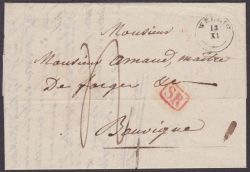 WELLIN
13
XI
Monsieur
Monsieur Amand, maître
De forges &c
SR
Bouvigne